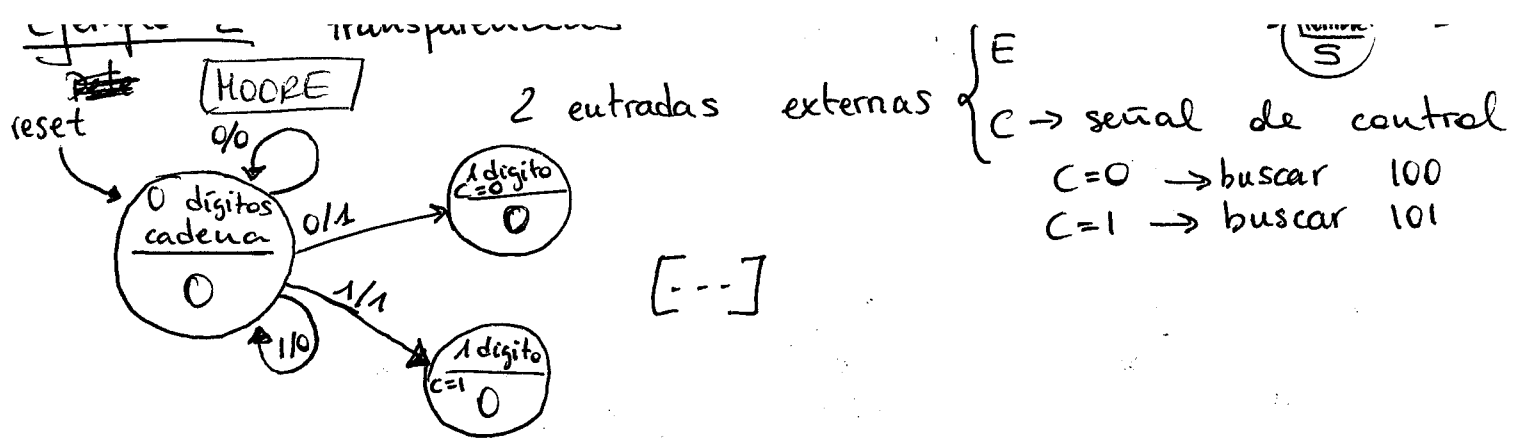 Ejemplo 2 Transparencias
MOORE
reset
2 entradas externas
E
C → señal de control
C=0 → buscar 100
C=1 → buscar 101
S
0/0
0 dígitos
cadena
0
0/1
1 dígito
C=0
0
1/1
1/0
1 dígito
C=1
0
[---]